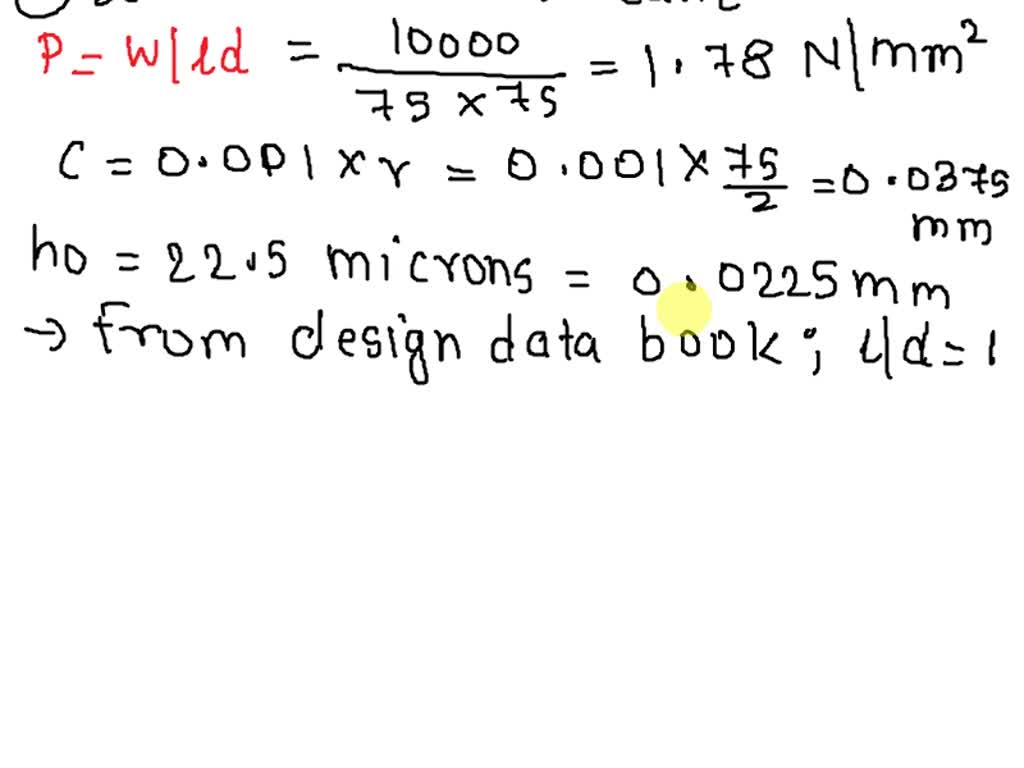 P = W/ld = 10000 / 75 x 75 = 1.78 N/mm²
C = 0.001 x r = 0.001 x 75/2 = 0.0375
mm
ho = 22.5 microns = 0.0225 mm
→ from design data book ; l/d = 1